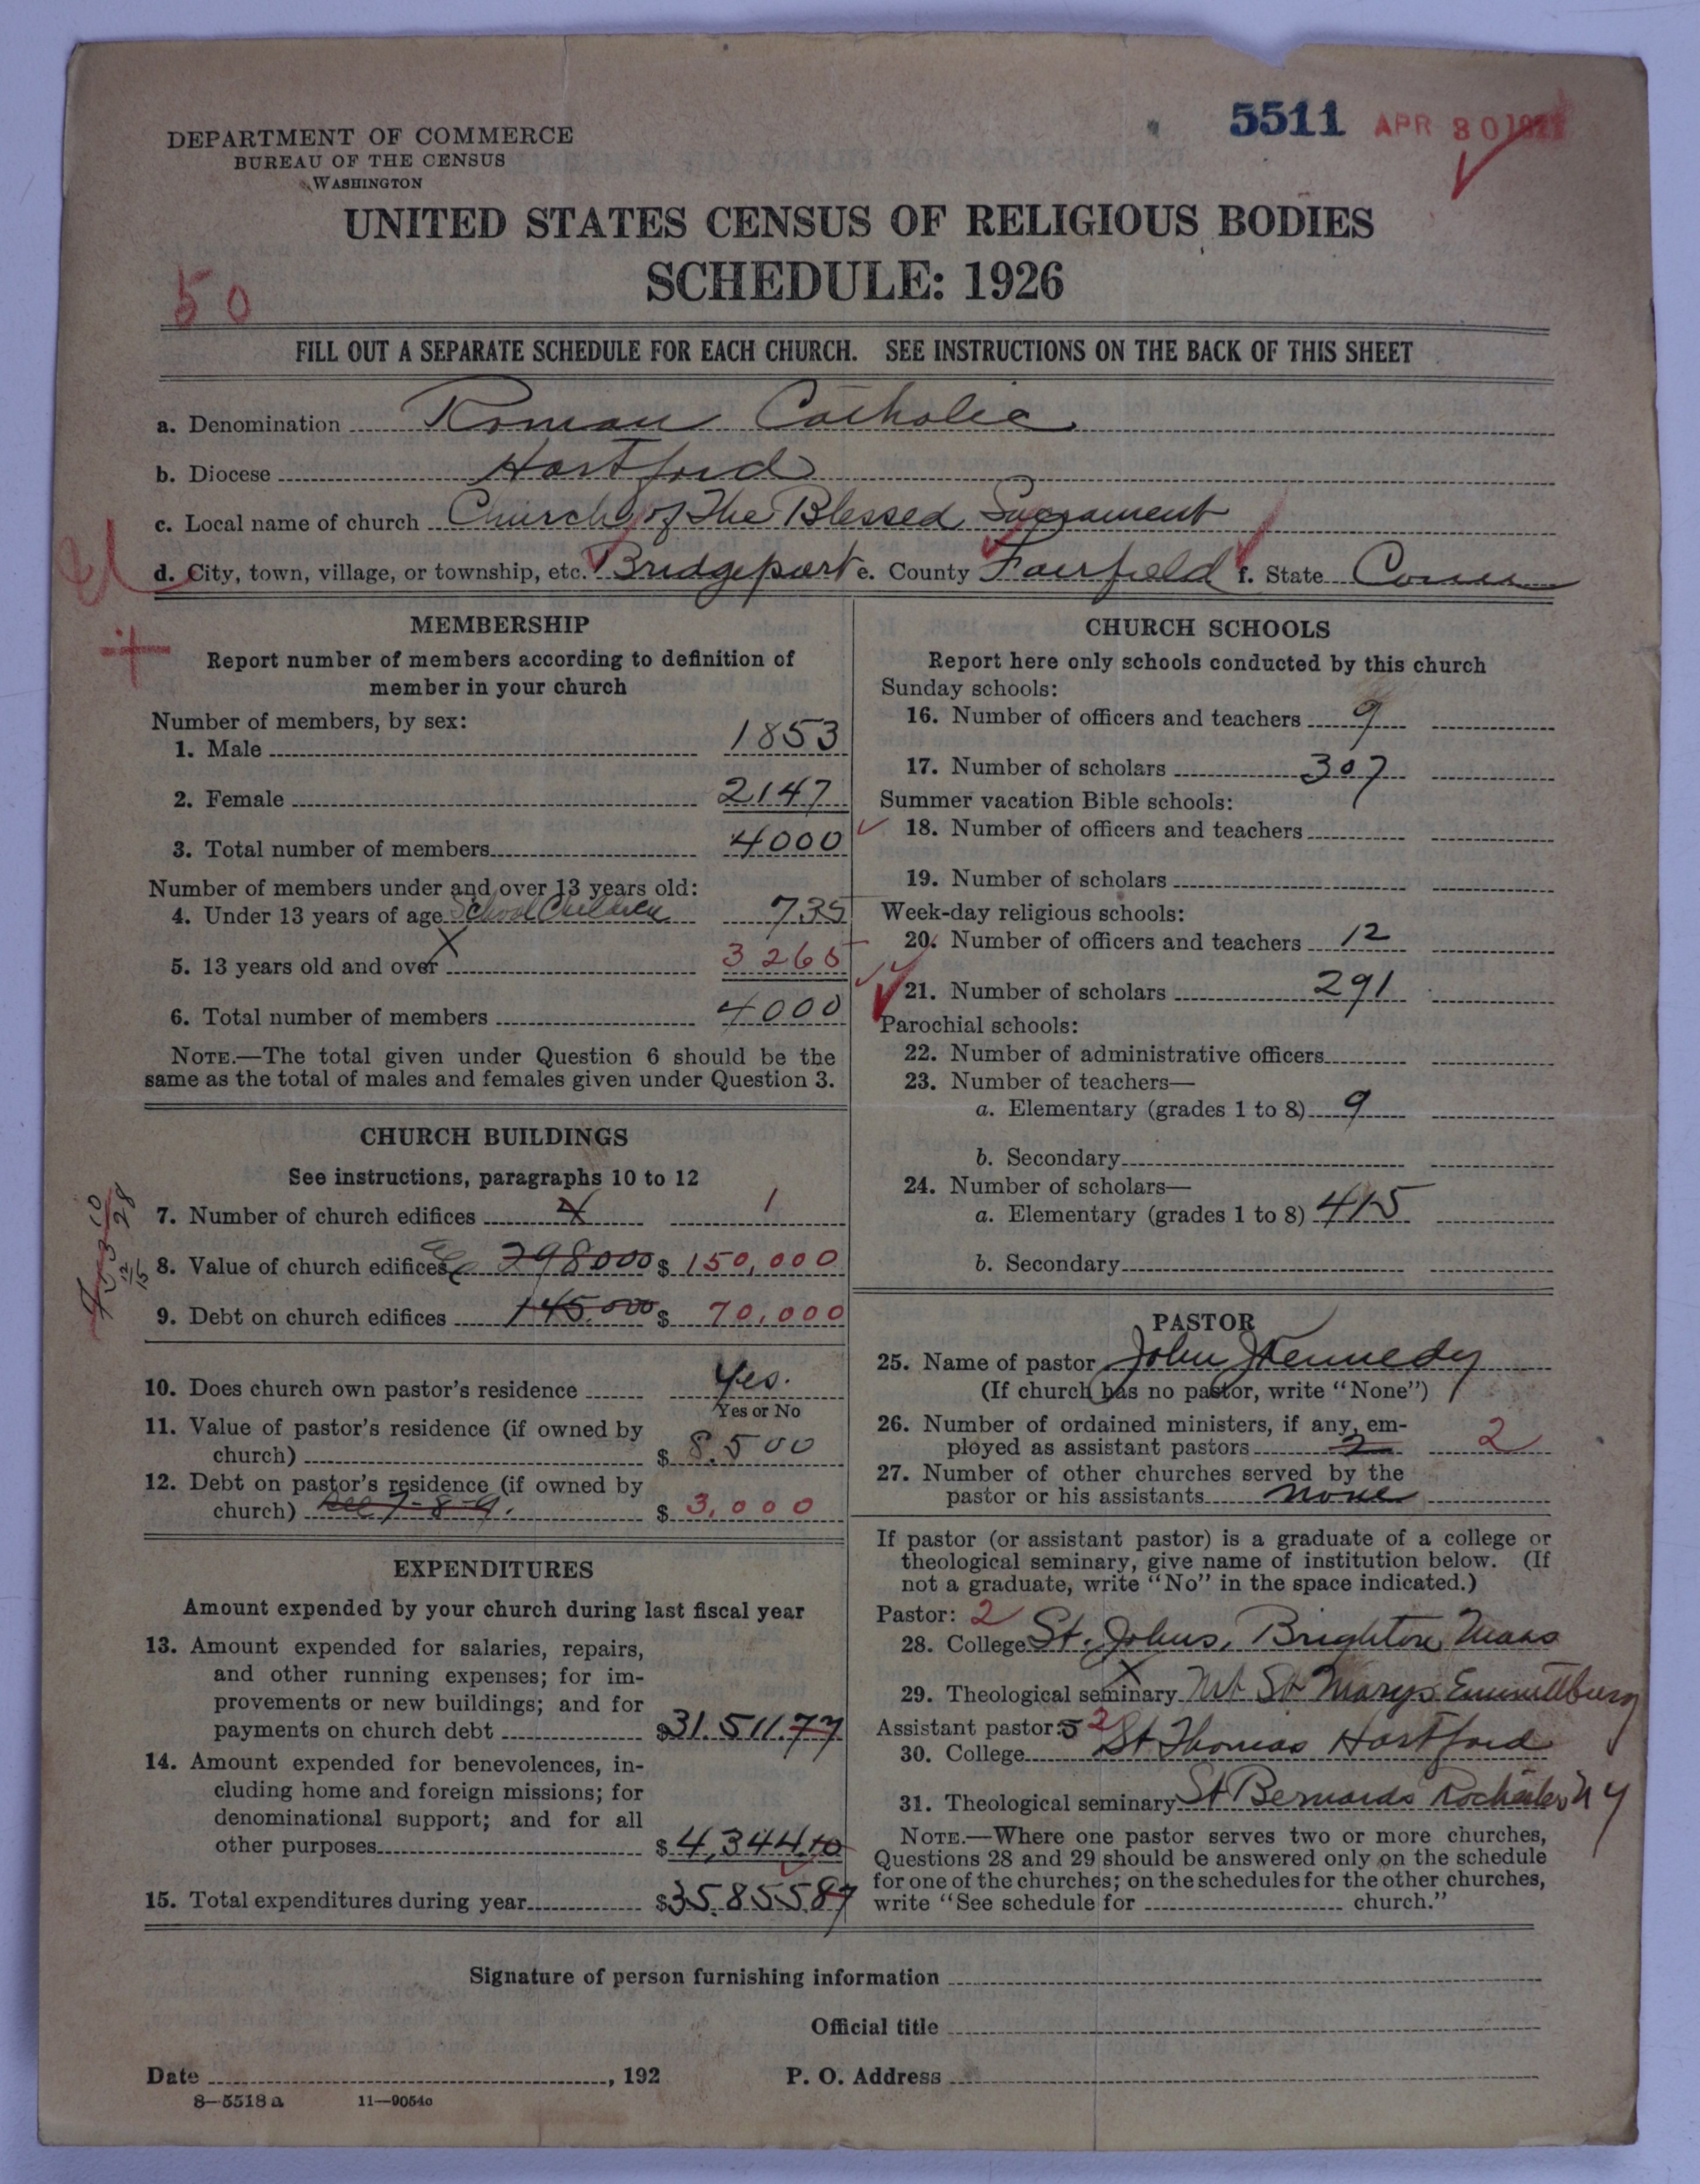 5511 APR 30 192
DEPARTMENT OF COMMERCE
BUREAU OF THE CENSUS
WASHINGTON
UNITED STATES CENSUS OF RELIGIOUS BODIES
SCHEDULE: 1926
50
FILL OUT A SEPARATE SCHEDULE FOR EACH CHURCH. SEE INSTRUCTIONS ON THE BACK OF THIS SHEET
a. Denomination Roman Catholic
b. Diocese Hartford
c. Local name of church Church of The Blessed Sacrament
d. City, town, village, or township, etc. Bridgeport e. County Fairfield f. State Conn
MEMBERSHIP
Report number of members according to definition of
member in your church
Number of members, by sex:
1. Male 1853
2. Female 2147
3. Total number of members 4000
Number of members under and over 13 years old:
4. Under 13 years of age School Children 735
5. 13 years old and over 3265
6. Total number of members 4000
NOTE.—The total given under Question 6 should be the
same as the total of males and females given under Question 3.
CHURCH BUILDINGS
See instructions, paragraphs 10 to 12
7. Number of church edifices 4 1
8. Value of church edifices 298000 $ 150,000
9. Debt on church edifices 145.000 $ 70,000
10. Does church own pastor's residence Yes.
Yes or No
11. Value of pastor's residence (if owned by
church) $ 8.500
12. Debt on pastor's residence (if owned by
church) See 7-8-9. $ 3,000
EXPENDITURES
Amount expended by your church during last fiscal year
13. Amount expended for salaries, repairs,
and other running expenses; for im-
provements or new buildings; and for
payments on church debt $31.511.77
14. Amount expended for benevolences, in-
cluding home and foreign missions; for
denominational support; and for all
other purposes $4,344.10
15. Total expenditures during year $35.855.87
CHURCH SCHOOLS
Report here only schools conducted by this church
Sunday schools:
16. Number of officers and teachers 9
17. Number of scholars 307
Summer vacation Bible schools:
18. Number of officers and teachers
19. Number of scholars
Week-day religious schools:
20. Number of officers and teachers 12
21. Number of scholars 291
Parochial schools:
22. Number of administrative officers
23. Number of teachers—
a. Elementary (grades 1 to 8) 9
b. Secondary
24. Number of scholars—
a. Elementary (grades 1 to 8) 415
b. Secondary
PASTOR
25. Name of pastor John J Kennedy
(If church has no pastor, write "None")
26. Number of ordained ministers, if any, em-
ployed as assistant pastors 2 2
27. Number of other churches served by the
pastor or his assistants none
If pastor (or assistant pastor) is a graduate of a college or
theological seminary, give name of institution below. (If
not a graduate, write "No" in the space indicated.)
Pastor: 2
28. College St. Johns, Brighton, Mass
29. Theological seminary Mt St Marys Emmittburg
Assistant pastor: 2
30. College St Thomas Hartford
31. Theological seminary St Bernards Rochester N Y
NOTE.—Where one pastor serves two or more churches,
Questions 28 and 29 should be answered only on the schedule
for one of the churches; on the schedules for the other churches,
write "See schedule for church."
Signature of person furnishing information
Official title
Date , 192 P. O. Address
8—5518 a 11—9054c